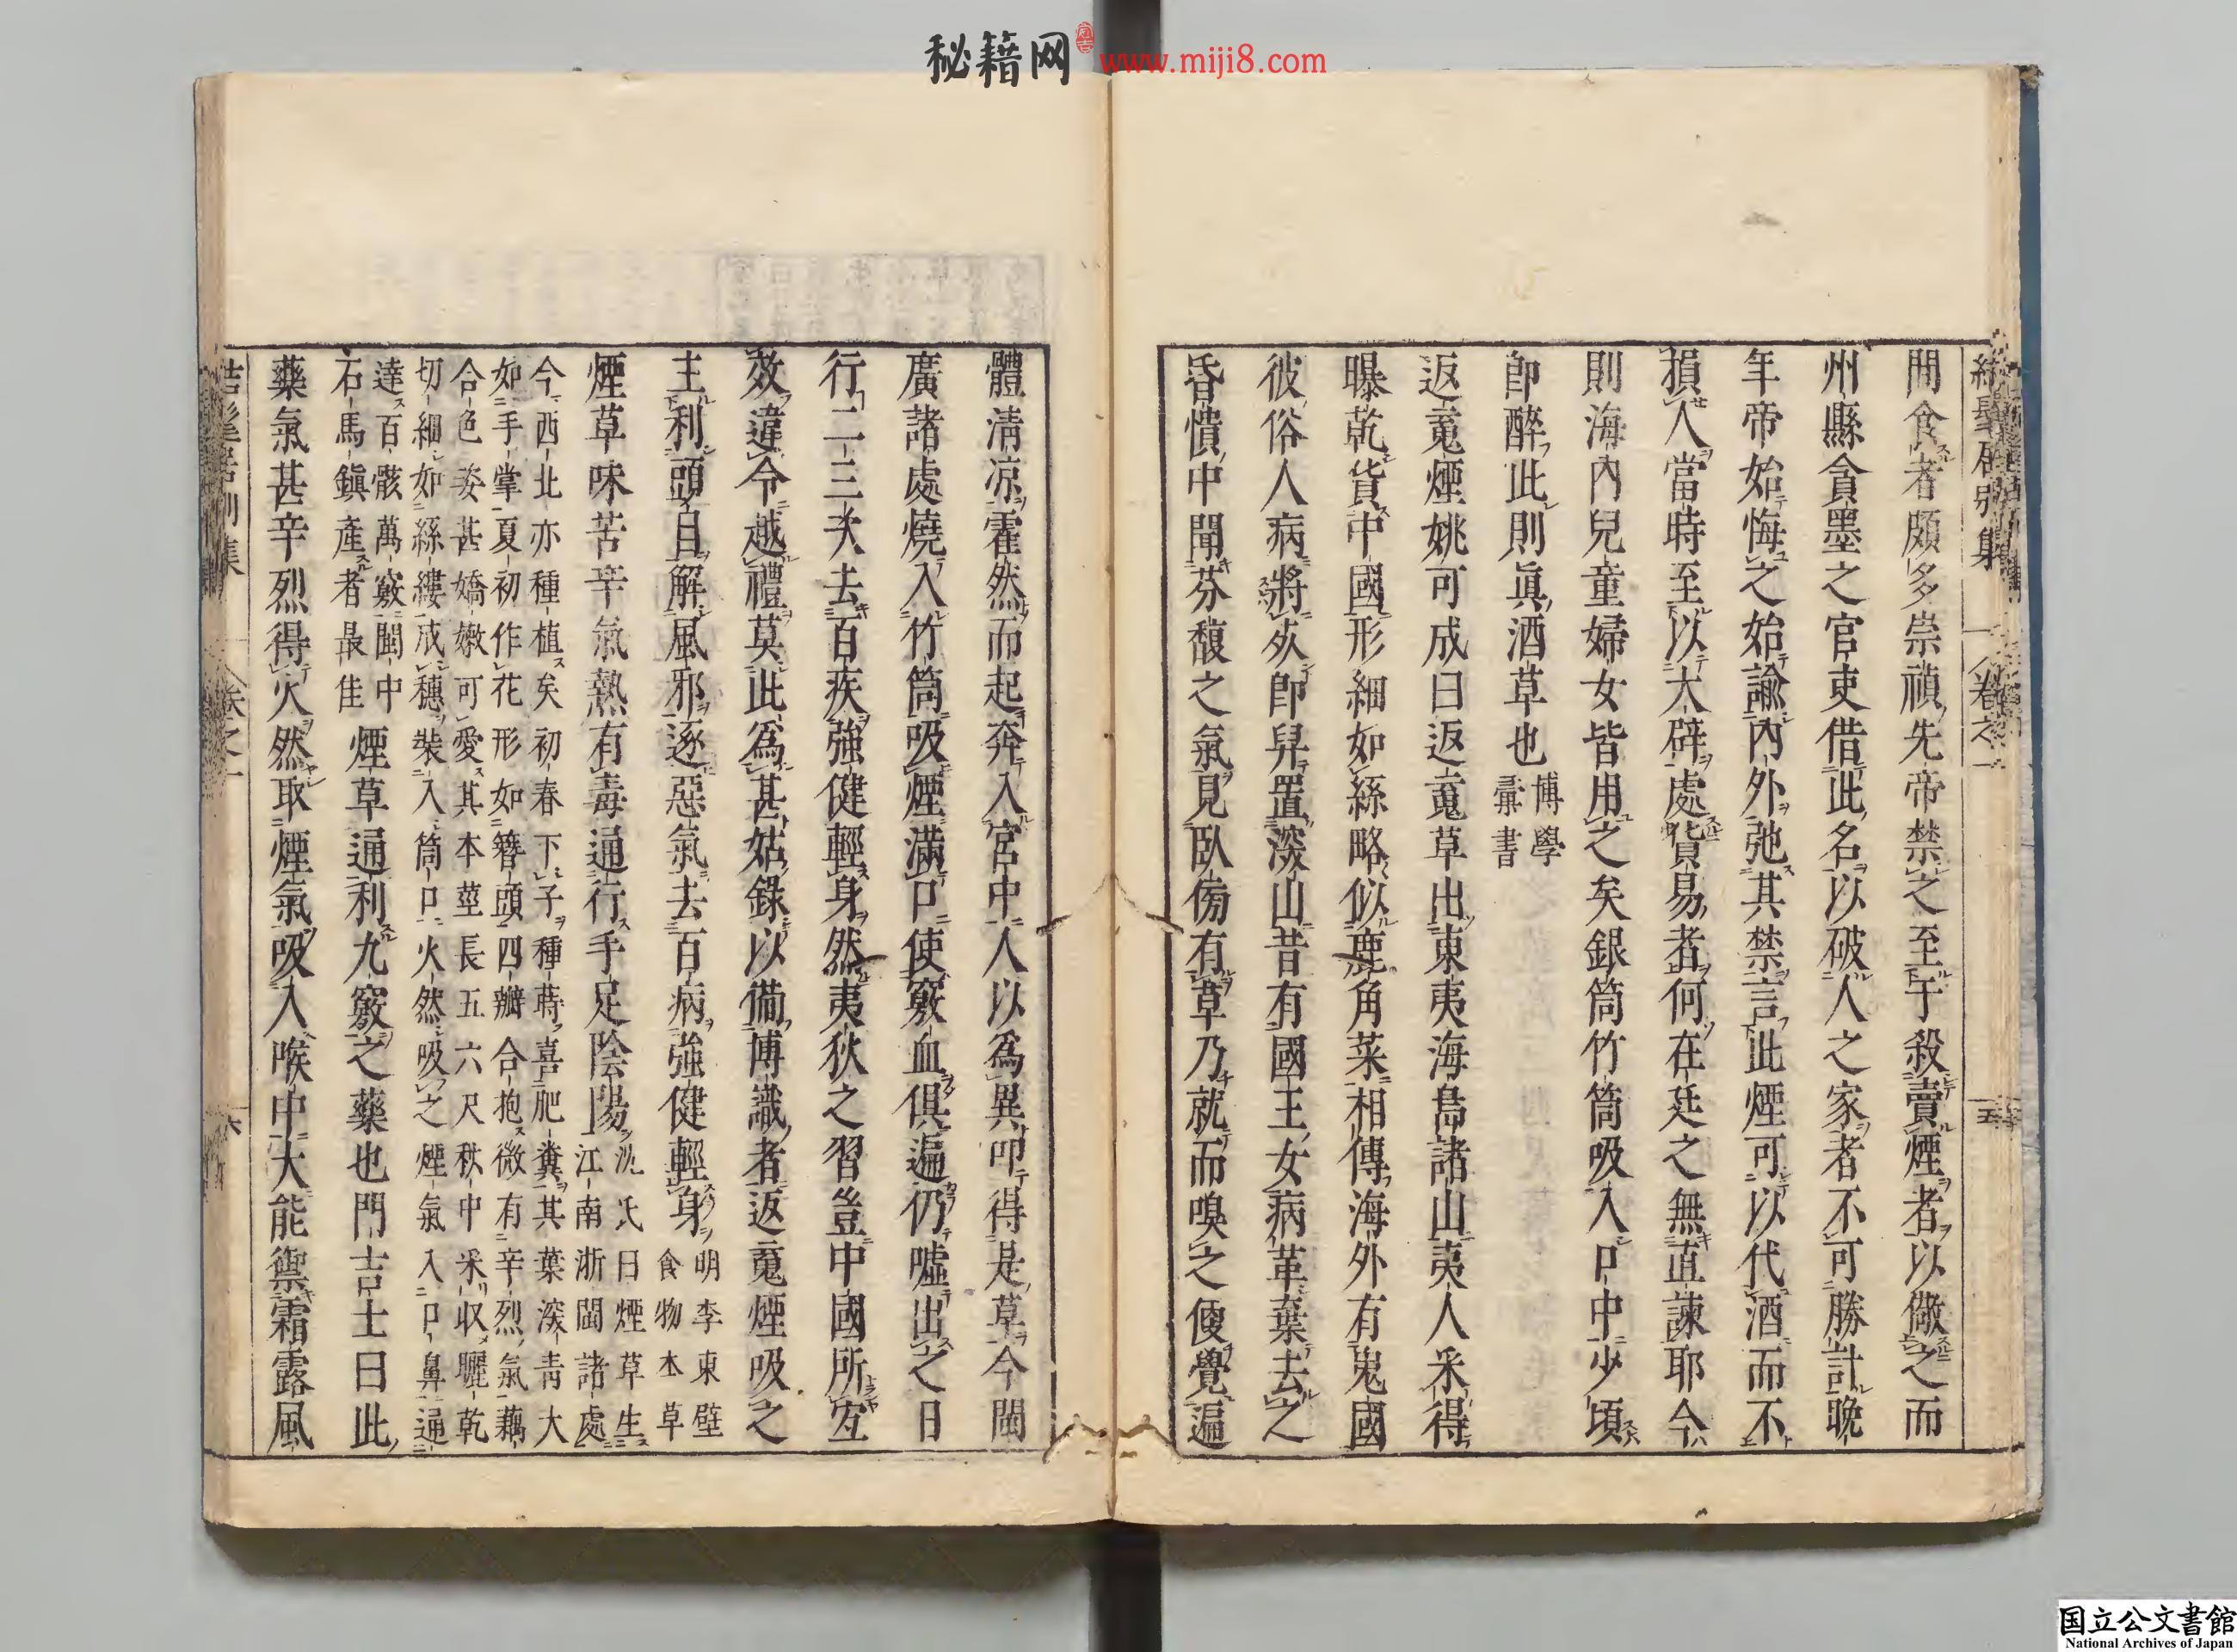 秘籍网 www.miji8.com
結髦居別集 卷之一 五
間食者頗多崇禎先帝禁之至于殺賣煙者以儆之而
州縣貪墨之官吏借此名以破人之家者不可勝計晚
年帝始悔之始諭內外弛其禁言此煙可以代酒而不
損人當時至以大辟處貨易者何在廷之無直諫耶今
則海內兒童婦女皆用之矣銀筒竹筒吸入口中少頃
即醉此則真酒草也博學
彙書
返䰟煙姚可成曰返䰟草出東夷海島諸山夷人采得
曝乾貨中國形細如絲略似鹿角菜相傳海外有鬼國
彼俗人病將死即舁置深山昔有國王女病革棄去之
昏憒中聞芬馥之氣見臥傍有草乃就而嗅之便覺遍
體清凉霍然而起奔入宮中人以為異叩得是草今閩
廣諸處燒入竹筒吸煙滿口使竅血俱遍仍噓出之日
行二三次去百疾強健輕身然夷狄之習豈中國所宜
效違令越禮莫此為甚姑錄以備博識者返䰟煙吸之
主利頭目解風邪逐惡氣去百病強健輕身明李東壁
食物本草
煙草味苦辛氣熱有毒通行手足陰陽沈氏曰煙草生
江南浙閩諸處
今西北亦種植矣初春下子種蒔喜肥糞其葉深青大
如手掌夏初作花形如簪頭四瓣合抱微有辛烈氣藕
合色姿甚嬌嫩可愛其本莖長五六尺秋中采收曬乾
切細如絲縷成穗裝入筒口火然吸之煙氣入口鼻通
達百骸萬竅閩中
石馬鎮產者最佳煙草通利九竅之藥也門吉士曰此
藥氣甚辛烈得火然取煙氣吸入喉中大能禦霜露風
結髦居別集 卷之一 六
国立公文書館
National Archives of Japan